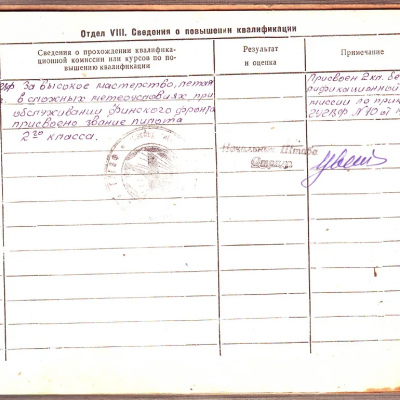 Отдел VIII. Сведения о повышении квалификации
Сведения о прохождении квалифика-
ционной комиссии или курсов по по-
вышению квалификации
Результат
и оценка
Примечание
За высокое мастерство, летая
в сложных метеоусловиях при
обслуживании Финского фронта
присвоено звание пилота
2го класса.
Начальник Штаба
Присвоен 2 кл. бе
лификационной
миссии по при
ГУГВФ №40 от